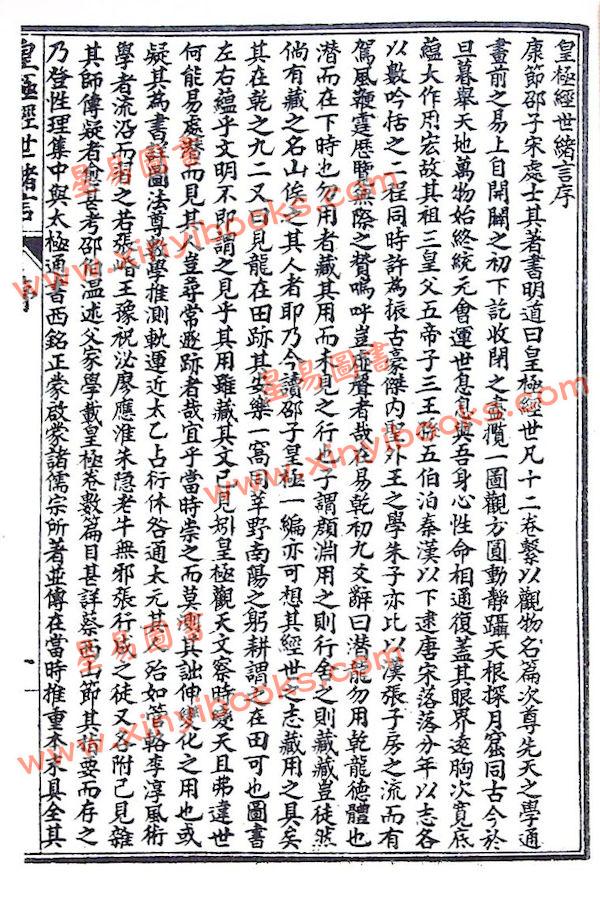 皇極經世緒言序
康節邵子宋處士其著書明道曰皇極經世凡十二卷繫以觀物名篇次尊先天之學通
畫前之易上自開闢之初下訖收閉之盡攬一圖觀方圓動靜躡天根探月窟同古今於
旦暮舉天地萬物始終統元會運世息息與吾身心性命相通復蓋其眼界遠胸次寬底
蘊大作用宏故其祖三皇父五帝子三王孫五伯洎秦漢以下逮唐宋落落分年以志各
以數吟括之二程同時許為振古豪傑內聖外王之學朱子亦比以漢張子房之流而有
駕風鞭霆歷覽無際之贊嗚呼豈虛聲者哉在易乾初九爻辭曰潛龍勿用乾龍德體也
潛而在下時也勿用者藏其用而未見之行也子謂顏淵用之則行舍之則藏藏豈徒然
倘有藏之名山俟之其人者耶乃今讀邵子皇極一編亦可想其經世之志藏用之具矣
其在乾之九二又曰見龍在田跡其安樂一窩同莘野南陽之躬耕謂之在田可也圖書
左右蘊乎文明不即謂之見乎其用雖藏其文已見矧皇極觀天文察時變天且弗違世
何能易處潛而見其人豈尋常遯跡者哉宜乎當時崇之而莫測其詘伸變化之用也或
疑其為書詳圖法尊數學推測軌運近太乙占衍休咎通太元其人殆如管輅李淳風術
學者流沿而習之若張㟭王豫祝泌廖應淮朱隱老牛無邪張行成之徒又各附己見雜
其師傳疑者愈甚考邵伯溫述父家學載皇極卷數篇目甚詳蔡西山節其指要而存之
乃登性理集中與太極通書西銘正蒙啟蒙諸儒宗所著並傳在當時推重本末具全其
皇極經世緒言
序
一
星易圖書
www.xinyibooks.com
星易圖書
www.xinyibooks.com
星易圖書
www.xinyibooks.com